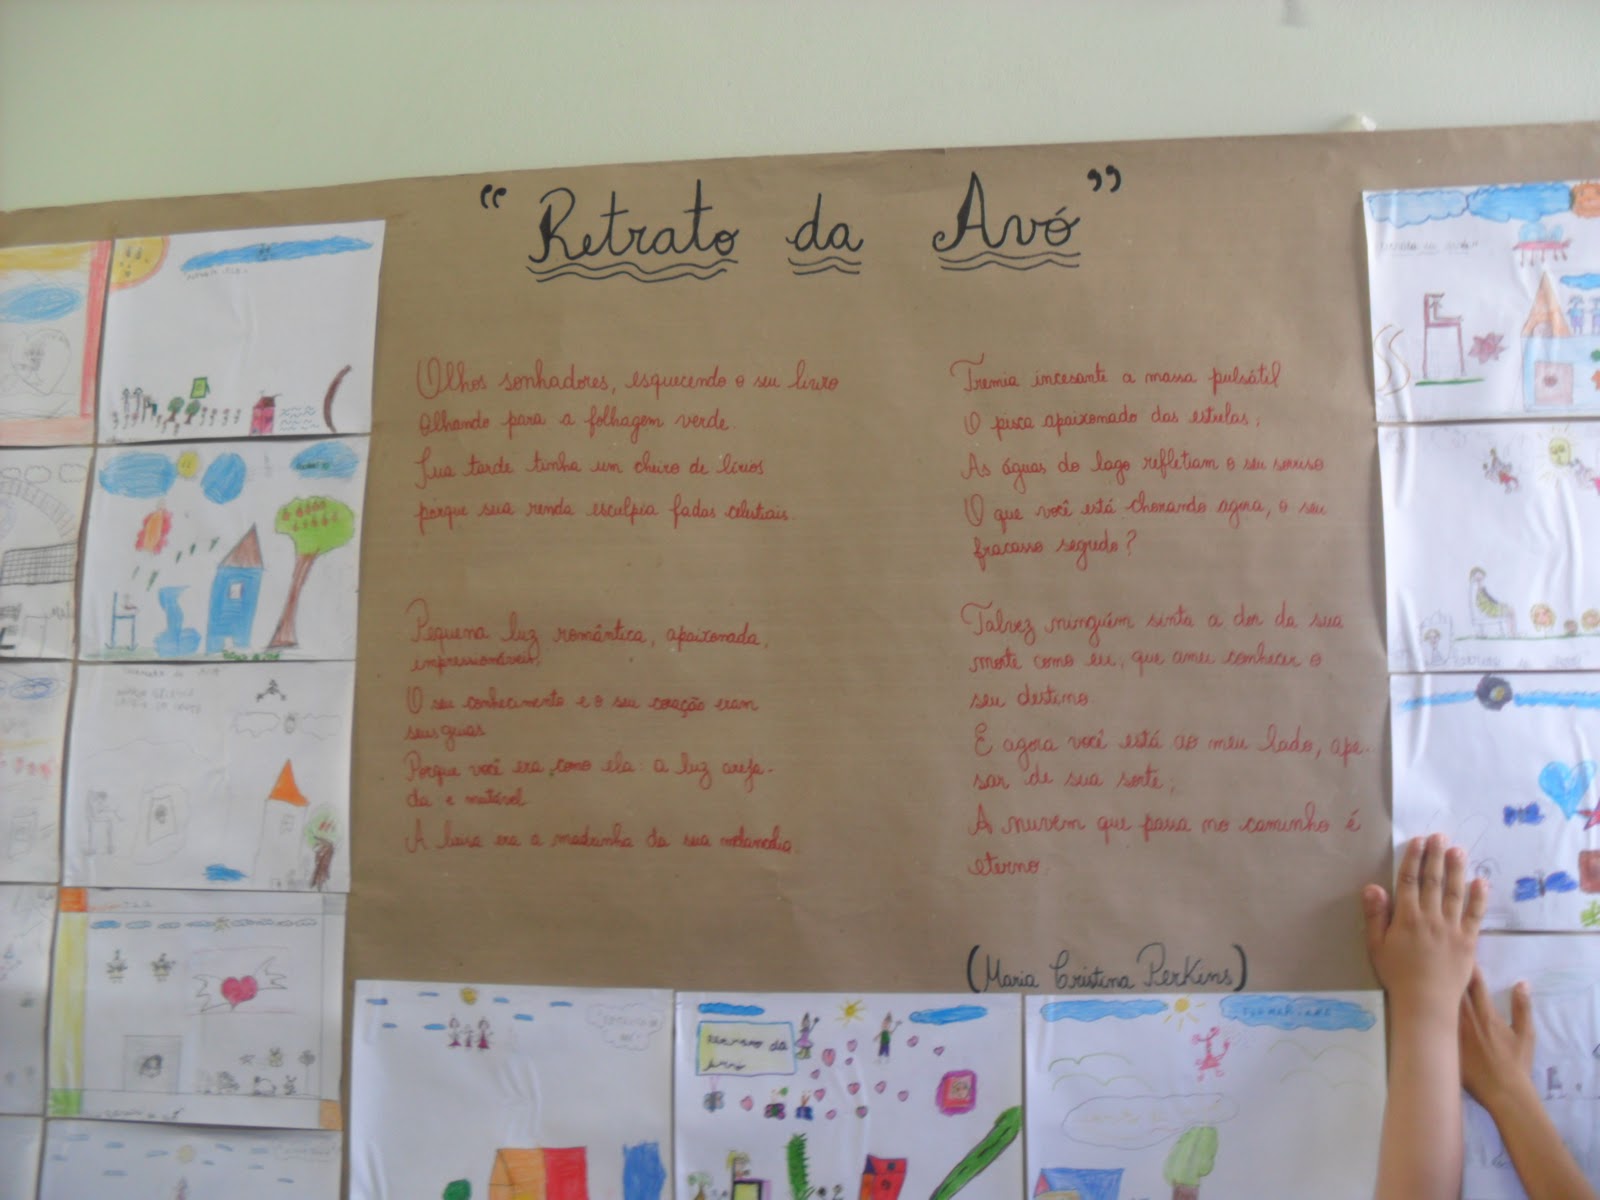 “Retrato da Avó”
Olhos sonhadores, esquecendo o seu livro
Olhando para a folhagem verde.
Sua tarde tinha um cheiro de lírios
porque sua renda esculpia fadas celestiais.
Pequena luz romântica, apaixonada,
impressionável;
O seu conhecimento e o seu coração eram
seus guias
Porque você era, como ela: a luz areja-
da e mutável
A lua era a madrinha da sua melancolia
Tremia incesante a massa pulsátil
O pisca apaixonado das estrelas;
As águas do lago refletiam o seu sorriso
O que você está chorando agora, o seu
fracasso segredo?
Talvez ninguém sinta a dor da sua
morte como eu, que amei conhecer o
seu destino.
E agora você está ao meu lado, ape-
sar de sua sorte;
A nuvem que passa no caminho é
eterno.
(Maria Cristina Perkins)
Retrato da